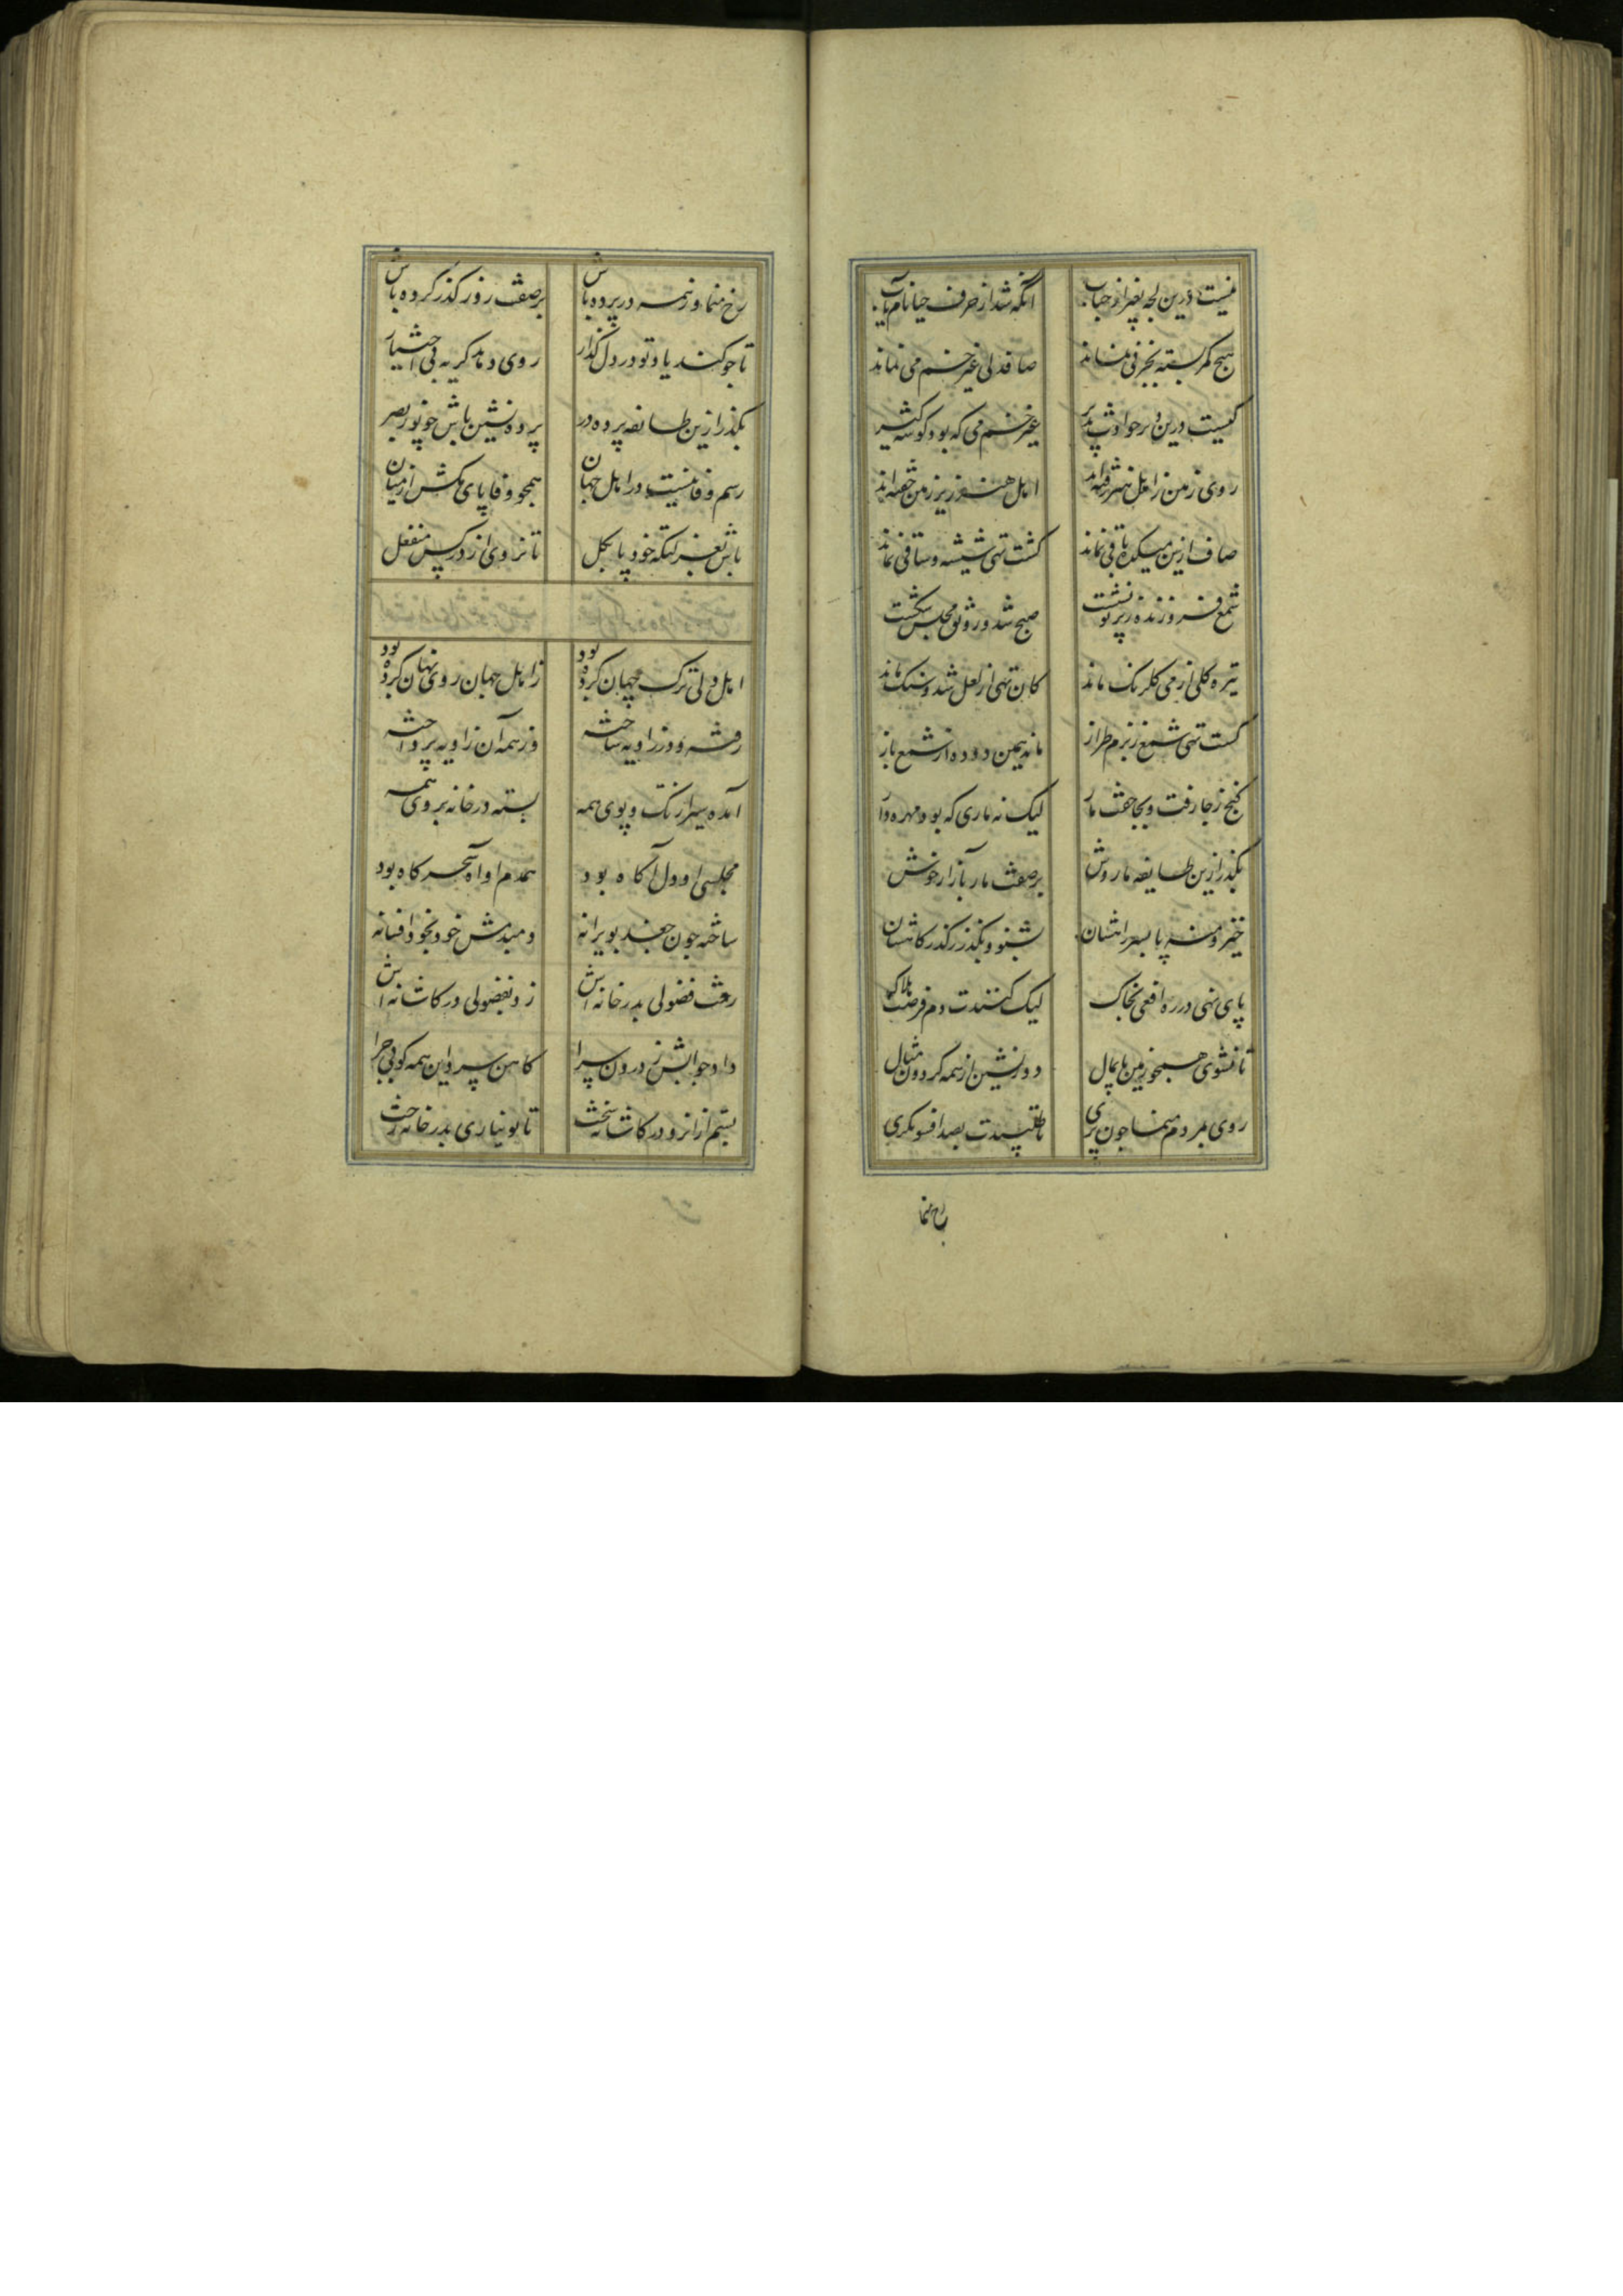 نیست درین لجه بغیر از حباب انکه شد از حرف حیا نام یاب
هیچ کمر بسته بجز نی نماند صافدلی غیر خم می نماند
کیست درین دیر حوادث پذیر غیر خم می که بود کوشه کیر
روی زمین را اهل هنر رفته‌اند اهل هنر زیر زمین خفته‌اند
صاف ازین میکده باقی نماند کشت تهی شیشه و ساقی نماند
شمع فروزنده ز پرتو نشست صبح شد و رونق مجلس شکست
تیره کلی از می کلرنک ماند کان تهی از لعل شد و سنک ماند
کشت تهی شمع ز بزم طراز ماند همین دوده از شمع باز
کنج ز جا رفت و بجا خفت مار لیک نه ماری که بود مهره دار
بگذر ازین طایفه مار وش بر صفت مار بآزار خوش
خیز و منه پا بسر راهشان بشنو و بکذر ز کذرکاهشان
پای نهی در ره افعی بخاک لیک کنندت دم فرصت هلاک
تا نشوی همچو زمین پایمال دور نشین از همه کردون مثال
روی بمردم منما چون پری تا طلبیندت بصد افسونکری
رخ منما
رخ منما وز همه در پرده باش بر صفت روز کذر کرده باش
تا چو کند یاد تو در دل کذار روی دهد کریه بی اختیار
بکذر ازین طایفه پرده در پرده نشین باش چو نور بصر
رسم وفا نیست در اهل جهان همچو وفا پای بکش از میان
باش بغمکده خود پا بکل تا نروی از در کس منفعل
اهل دلی ترک جهان کرده بود ز اهل جهان روی نهان کرده بود
رفته و در زاویه ساخته وز همه آن زاویه پرداخته
آمده سیر از تک و پوی همه بسته در خانه بروی همه
مجلسی او دل آکاه بود همدم او آه سحرکاه بود
ساخته چون جغد بویرانه ومیدمش خود بخود افسانه
رفت فضولی بدر خانه‌اش زد بفضولی در کاشانه‌اش
داد جوابش ز درون سرا کاهن سرد این همه کوبی چرا
بستم از انرو در کاشانه سخت تا تو نیاری بدر خانه رخت